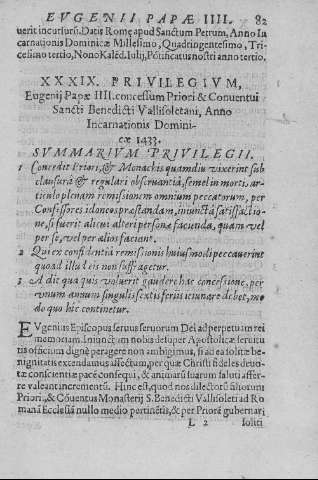 EVGENII PAPAE IIII. 82
uerit incursurũ. Datis Romę apud Sanctum Petrum, Anno In
carnationis Dominicæ Millesimo, Quadringentesimo, Tri-
cesimo tertio, Nono Kalẽd. Iulij, Põtificatus nostri anno tertio.
XXXIX. PRIVILEGIVM,
Eugenij Papæ IIII. concessum Priori & Conuentui
Sancti Benedicti Vallisoletani, Anno
Incarnationis Domini-
cæ 1433.
SVMMARIVM PRIVILEGII.
1 Concedit Priori, & Monachis quamdiu vixerint sub
clausura & regulari obseruantia, semel in mortis ar-
ticulo plenam remissionem omnium peccatorum, per
Confessores idoneos præstandam, iniuncta satisfactio
ne, si fuerit alicui alteri personæ facienda, quam vel
per se, vel per alios faciant.
2 Qui ex confidentia remissionis huiusmodi peccauerint
quoad illa eis non suffragetur.
3 Addit qua quis voluerit gaudere hac concessione, per
vnum annum singulis sextis feriis ieiunare debet, mo
do quo hic continetur.
EVgenius Episcopus seruus seruorum Dei ad perpetuam rei
memoriam. Iniunctum nobis desuper Apostolicæ seruitu
tis officium dignè peragere non ambigimus, si ad ea solitæ be-
nignitatis extendamus affectum, per quæ Christi fideles deuo-
tæ conscientiæ pacẽ consequi, & animarũ suarum saluti affer-
re valeant incrementũ. Hinc est, quod nos dilectorũ filiorum
Priori, & Cõuentus Monasterij S. Benedicti Vallisoleti ad Ro
manã Ecclesiã nullo medio pertinẽtis, & per Priorẽ gubernari
L 2 soliti